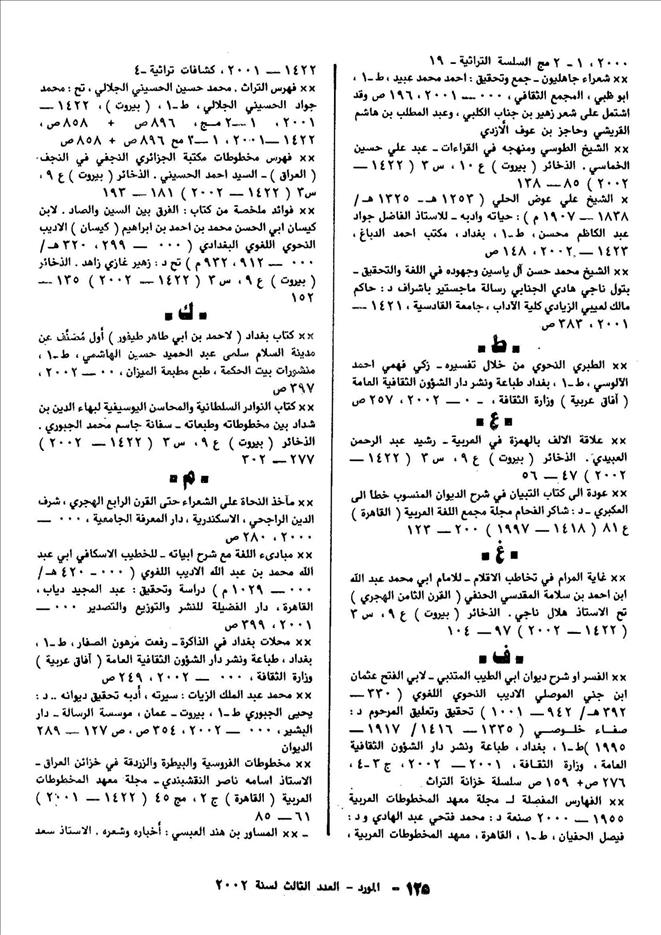 ٢٠٠٠، ١ - ٢ مج السلسة التراثية - ١٩
×× شعراء جاهليون - جمع وتحقيق : احمد محمد عبيد ، ط-١ ،
ابو ظبي ، المجمع الثقافي ، ٠٠٠ — ٢٠٠١ ، ١٩٦ ص وقد
اشتمل على شعر زهير بن جناب الكلبي ، وعبد المطلب بن هاشم
القريشي وحاجز بن عوف الأزدي
×× الشيخ الطوسي ومنهجه في القراءات - عبد علي حسين
الخماسي . الذخائر ( بيروت ) ع ١٠ ، س ٣ ( ١٤٢٢ —
٢٠٠٢ ) ٨٥ — ١٣٨
× الشيخ علي عوض الحلي ( ١٢٥٣ هـ - ١٣٢٥ هـ /
١٨٣٨ — ١٩٠٧ م ) : حياته وادبه - للاستاذ الفاضل جواد
عبد الكاظم محسن ، ط-١ ، بغداد ، مكتب احمد الدباغ ،
١٤٢٣ — ٢٠٠٢ ، ١٤٨ ص
×× الشيخ محمد حسن آل ياسين وجهوده في اللغة والتحقيق -
بتول ناجي هادي الجنابي رسالة ماجستير باشراف د : حاكم
مالك لعيبي الزيادي كلية الآداب ، جامعة القادسية ، ١٤٢١ —
٢٠٠١ ، ٣٨٣ ص
■ ط ■
×× الطبري النحوي من خلال تفسيره - زكي فهمي احمد
الآلوسي ، ط-١ ، بغداد طباعة ونشر دار الشؤون الثقافية العامة
( آفاق عربية ) وزارة الثقافة ، ٠ — ٢٠٠٢ ، ٢٥٧ ص
■ ع ■
×× علاقة الالف بالهمزة في العربية - رشيد عبد الرحمن
العبيدي . الذخائر ( بيروت ) ع ٩ ، س ٣ ( ١٤٢٢ —
٢٠٠٢ ) ٤٧ — ٥٦
×× عودة الى كتاب التبيان في شرح الديوان المنسوب خطأ الى
العكبري - د : شاكر الفحام مجلة مجمع اللغة العربية ( القاهرة )
ع ٨١ ( ١٤١٨ — ١٩٩٧ ) ٢٠٠ — ١٢٣
■ غ ■
×× غاية المرام في تخاطب الاقلام - للامام ابي محمد عبد الله
ابن احمد بن سلامة المقدسي الحنفي ( القرن الثامن الهجري )
تح الاستاذ هلال ناجي . الذخائر ( بيروت ) ع ٩ ، س ٣
( ١٤٢٢ — ٢٠٠٢ ) ٩٧ — ١٠٤
■ ف ■
×× الفسر او شرح ديوان ابي الطيب المتنبي - لابي الفتح عثمان
ابن جني الموصلي الاديب النحوي اللغوي ( ٣٣٠ —
٣٩٢ هـ / ٩٤٢ — ١٠٠١ ) تحقيق وتعليق المرحوم د :
صفاء خلوصي ( ١٣٣٥ — ١٤١٦ / ١٩١٧ —
١٩٩٥ ) ط-١ ، بغداد ، طباعة ونشر دار الشؤون الثقافية
العامة ، وزارة الثقافة ، ٢٠٠١ — ٢٠٠٢ ، ج ٣-٤ ،
٢٧٦ ص + ١٥٩ ص سلسلة خزانة التراث
×× الفهارس المفصلة لـ مجلة معهد المخطوطات العربية
١٩٥٥ — ٢٠٠٠ صنعة د : محمد فتحي عبد الهادي و د :
فيصل الحفيان ، ط-١ ، القاهرة ، معهد المخطوطات العربية ،
١٤٢٢ — ٢٠٠١ ، كشافات تراثية - ٤
×× فهرس التراث . محمد حسين الحسيني الجلالي ، تح : محمد
جواد الحسيني الجلالي ، ط-١ ، ( بيروت ) ، ١٤٢٢ —
٢٠٠١ ، ١ — ٢ مج ، ٨٩٦ ص + ٨٥٨ ص ،
١٤٢٢ — ٢٠٠١ ، ١ — ٣ مج ٨٩٦ ص + ٨٥٨ ص
×× فهرس مخطوطات مكتبة الجزائري النجفي في النجف
( العراق ) - السيد احمد الحسيني . الذخائر ( بيروت ) ع ٩ ،
س ٣ ( ١٤٢٢ — ٢٠٠٢ ) ١٨١ — ١٩٣
×× فوائد ملخصة من كتاب : الفرق بين السين والصاد . لابن
كيسان ابي الحسن محمد بن احمد بن ابراهيم ( كيسان ) الاديب
النحوي اللغوي البغدادي ( ٠٠٠ — ٢٩٩ ، ٣٢٠ هـ /
٠٠٠ — ٩١٢ ، ٩٣٢ م ) تح د : زهير غازي زاهد . الذخائر
( بيروت ) ع ٩ ، س ٣ ( ١٤٢٢ — ٢٠٠٢ ) ١٣٥ —
١٥٢
■ ك ■
×× كتاب بغداد ( لاحمد بن ابي طاهر طيفور ) أول مُصنّف عن
مدينة السلام سلمى عبد الحميد حسين الهاشمي ، ط-١ ،
منشورات بيت الحكمة ، طبع مطبعة الميزان ، ٠٠ — ٢٠٠٢ ،
٣٩٧ ص
×× كتاب النوادر السلطانية والمحاسن اليوسيفية لبهاء الدين بن
شداد بين مخطوطاته وطبعاته - سفانة جاسم محمد الجبوري .
الذخائر ( بيروت ) ع ٩ ، س ٣ ( ١٤٢٢ — ٢٠٠٢ )
٢٧٧ — ٣٠٢
■ م ■
×× مآخذ النحاة على الشعراء حتى القرن الرابع الهجري ، شرف
الدين الراجحي ، الاسكندرية ، دار المعرفة الجامعية ، ٠٠٠ —
٢٠٠٠ ، ٢٨٠ ص
×× مبادىء اللغة مع شرح ابياته - للخطيب الاسكافي ابي عبد
الله محمد بن عبد الله الاديب اللغوي ( ٠٠٠ - ٤٢٠ هـ /
٠٠٠ — ١٠٢٩ م ) دراسة وتحقيق : عبد المجيد دياب ،
القاهرة ، دار الفضيلة للنشر والتوزيع والتصدير ٠٠٠ —
٢٠٠١ ، ٣٩٩ ص
×× محلات بغداد في الذاكرة - رفعت مرهون الصفار ، ط-١ ،
بغداد ، طباعة ونشر دار الشؤون الثقافية العامة ( آفاق عربية )
وزارة الثقافة ، ٠٠٠ — ٢٠٠٢ ، ٢٤٩ ص
×× محمد عبد الملك الزيات : سيرته ، أدبه تحقيق ديوانه .. د :
يحيى الجبوري ط-١ ، بيروت - عمان ، موسسة الرسالة - دار
البشير ، ٠٠٠ — ٢٠٠٢ ، ٣٥٤ ص ، ص ١٢٧ — ٢٨٩
الديوان
×× مخطوطات الفروسية والبيطرة والزردقة في خزائن العراق -
الاستاذ اسامه ناصر النقشبندي - مجلة معهد المخطوطات
العربية ( القاهرة ) ج ٢ ، مج ٤٥ ( ١٤٢٢ — ٢٠٠١ )
٦١ — ٨٥
- ×× المساور بن هند العبسي : أخباره وشعره . الاستاذ سعد
١٢٥ - المورد - العدد الثالث لسنة ٢٠٠٢